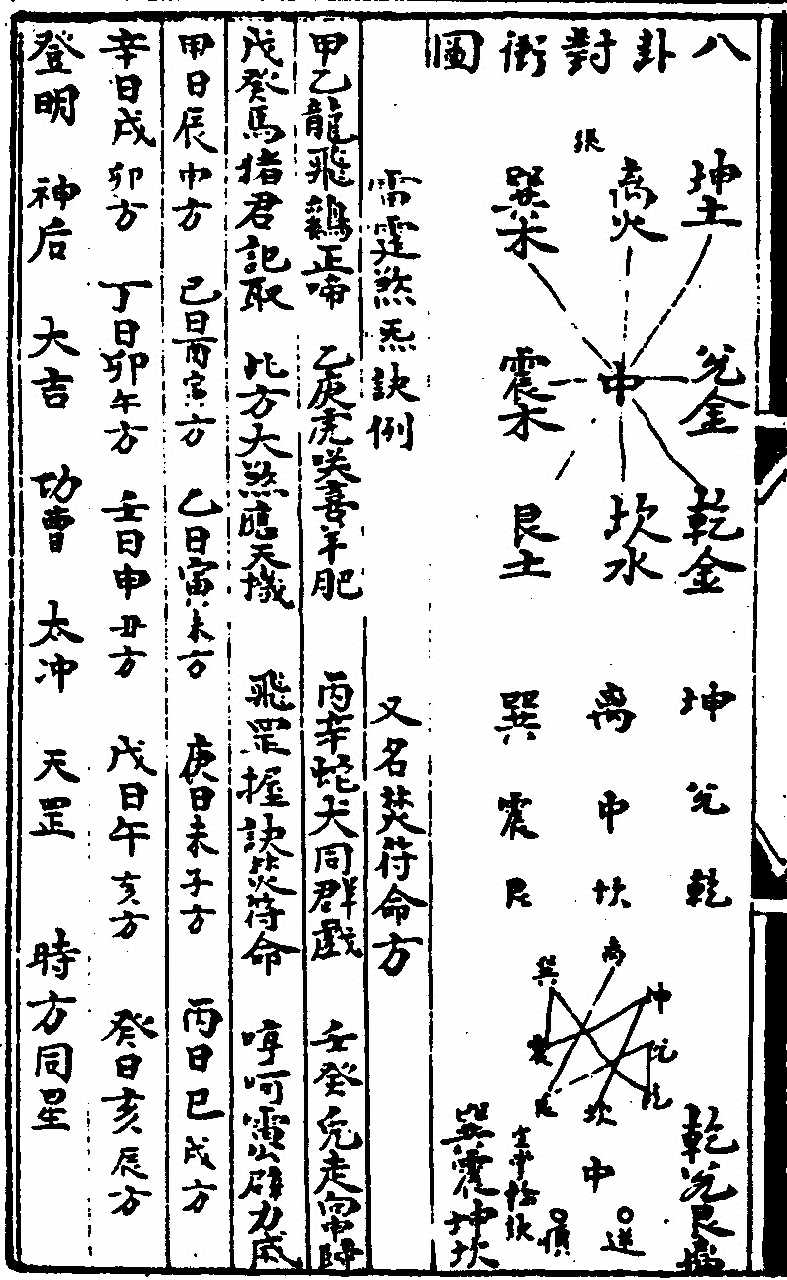 八卦對衝圖
坤土 離火 巽木
兌金 中 震木
乾金 坎水 艮土
坤 离 巽
兌 中 震
乾 坎 艮
离 巽 坤 震 兌 艮 坎 乾
乾兌艮離
中
逆 順
巽震坤坎
雷霆煞炁訣例 又名焚符命方
甲乙龍飛鷄正啼 乙庚虎咲喜羊肥 丙辛蛇犬同群戲 壬癸兔走常歸
戊癸馬猪君記取 此方大煞應天機 飛罡握訣焚符命 哼呵雷公辟力威
甲日辰申方 己日酉寅方 乙日寅未方 庚日未子方 丙日巳戌方
辛日戌卯方 丁日卯午方 壬日申丑方 戊日午亥方 癸日亥辰方
登明 神后 大吉 功曹 太冲 天罡 時方同星